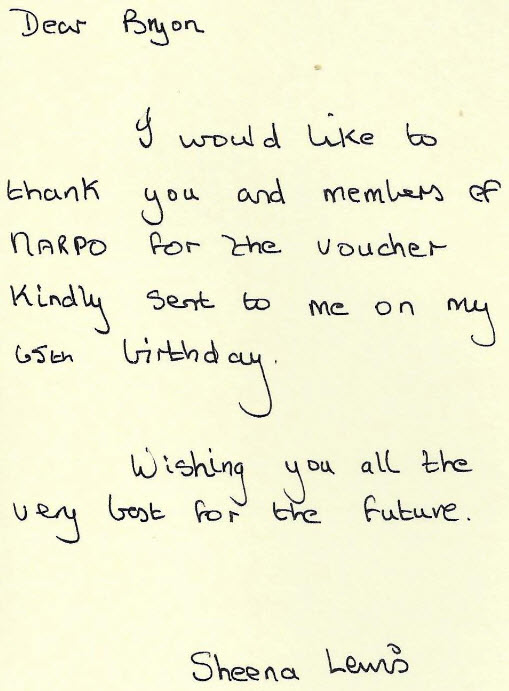 Dear Bryon
I would like to
thank you and members of
NARPO for the voucher
Kindly sent to me on my
65th birthday.
Wishing you all the
very best for the future.
Sheena Lewis